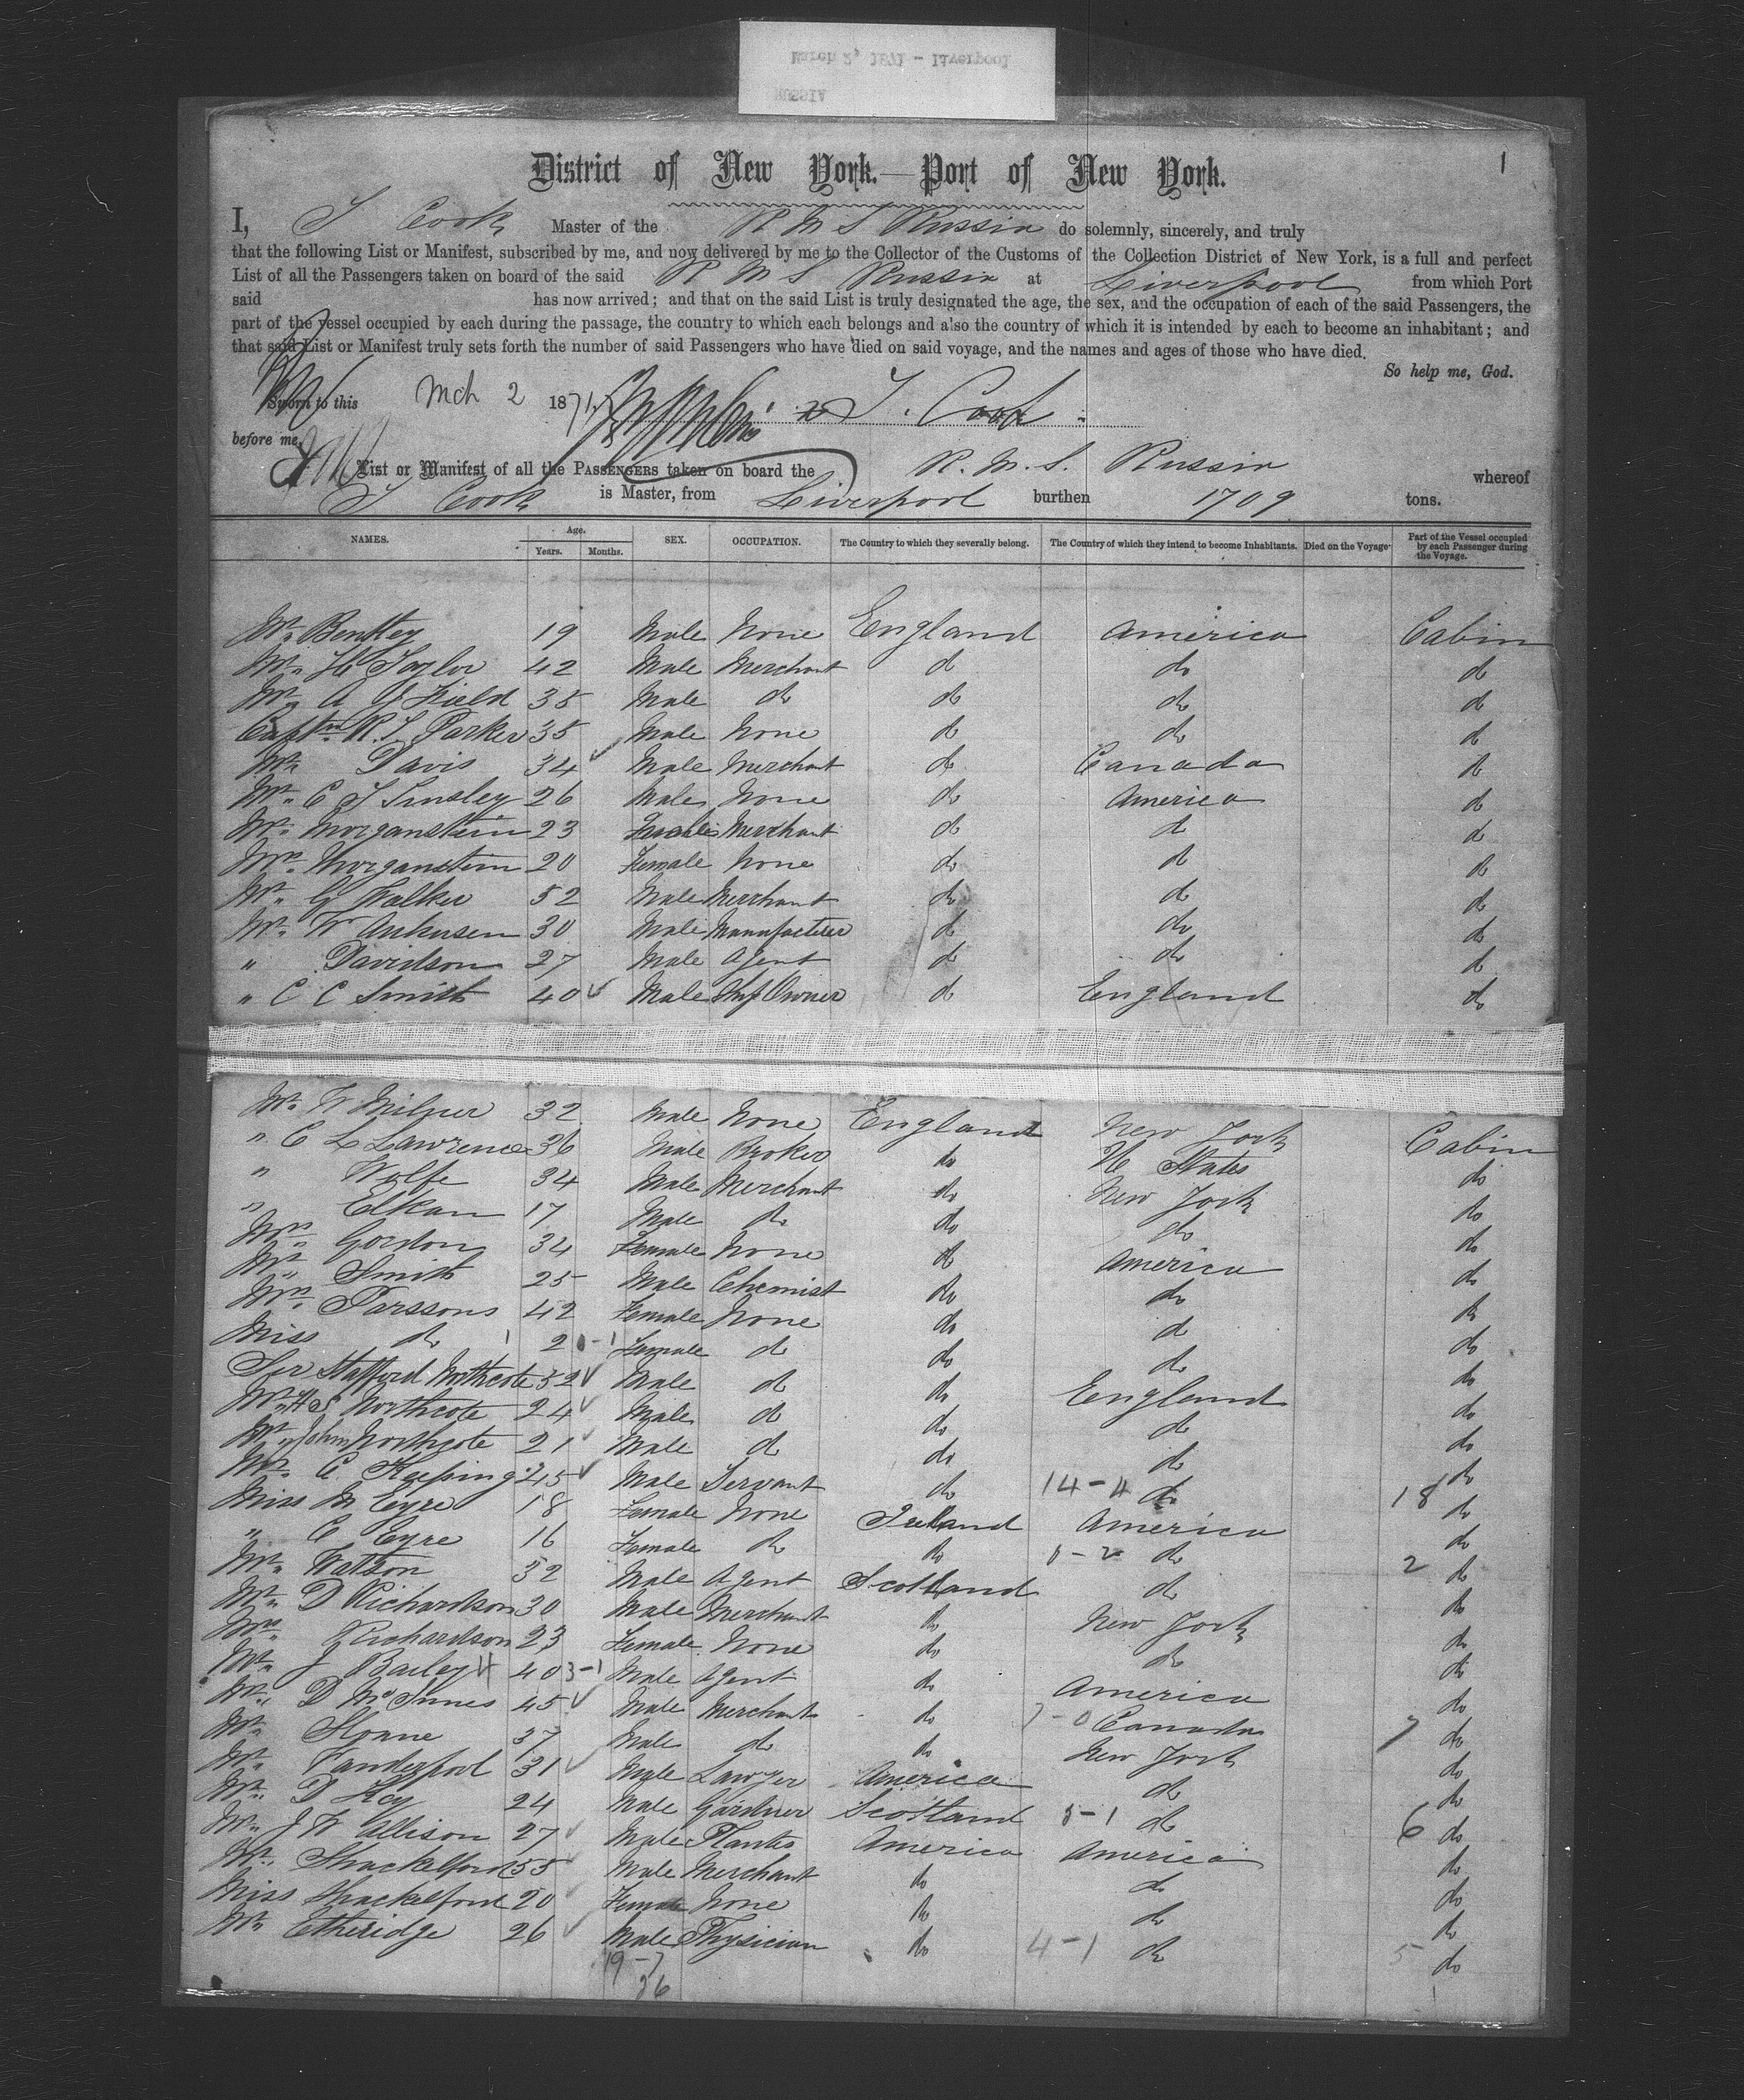 March 2, 1871 - Liverpool
RUSSIA
1
District of New York.—Port of New York.
I, T Cook Master of the R M S Russia do solemnly, sincerely, and truly
that the following List or Manifest, subscribed by me, and now delivered by me to the Collector of the Customs of the Collection District of New York, is a full and perfect
List of all the Passengers taken on board of the said R M S Russia at Liverpool from which Port
said has now arrived; and that on the said List is truly designated the age, the sex, and the occupation of each of the said Passengers, the
part of the vessel occupied by each during the passage, the country to which each belongs and also the country of which it is intended by each to become an inhabitant; and
that said List or Manifest truly sets forth the number of said Passengers who have died on said voyage, and the names and ages of those who have died.
So help me, God.
Sworn to this Mch 2 1871 T. Cook
before me,
List or Manifest of all the PASSENGERS taken on board the R. M. S. Russia whereof
T Cook is Master, from Liverpool burthen 1709 tons.
NAMES. Age. Years. Months. SEX. OCCUPATION. The Country to which they severally belong. The Country of which they intend to become Inhabitants. Died on the Voyage Part of the Vessel occupied by each Passenger during the Voyage.
Mr. Bentley 19 Male None England America Cabin
Mr. H Taylor 42 Male Merchant do do do
Mr A G Field 35 Male do do do do
Captn R. S. Parker 35 Male None do do do
Mr Davis 34 Male Merchant do Canada do
Mr. C T Tinsley 26 Male None do America do
Mr. Morganstein 23 Merchant do do do
Mrs. Morganstein 20 Female None do do do
Mr. G Walker 52 Male Merchant do do do
Mr. W 30 Male Manufacturer do do do
" Davidson 27 Male Agent do do do
" C C Smith 40 Male Ship Owner do England do
Mr. W Milner 32 Male None England New York Cabin
" C L Lawrence 36 Male Broker do U States do
" Wolfe 34 Male Merchant do New York do
" Elkan 17 Male do do do do
Mrs. Gordon 34 Female None do America do
Mr. Smith 25 Male Chemist do do do
Mrs. Parssons 42 Female None do do do
Miss do 2 0-1 Female do do do do
Sir Stafford Northcote 52 Male do do England do
Mr. H S Northcote 24 Male do do do do
Mr. John Northcote 21 Male do do do do
Mr. C Keeping 25 Male Servant do 14-4 do 18 do
Miss M Eyre 18 Female None Ireland America do
" C Eyre 16 Female do do 0-2 do 2 do
Mr. Watson 52 Male Agent Scotland do do
Mr. D Richardson 30 Male Merchant do New York do
Mrs. Richardson 23 Female None do do do
Mr. J Bailey 40 3-1 Male Agent do America do
Mr. D McInnes 45 Male Merchant do 7-0 Canada 7 do
Mr. Sloane 37 Male do do New York do
Mr. Vanderpool 31 Male Lawyer America do do
Mr. D Key 24 Male Gardner Scotland 5-1 do 6 do
Mr. J W Allison 27 Male Planter America America do
Mr. Shackelford 55 Male Merchant do do do
Miss Shackelford 20 Female None do do do
Mr. Etheridge 26 Male Physician do 4-1 do 5 do
19-7
26